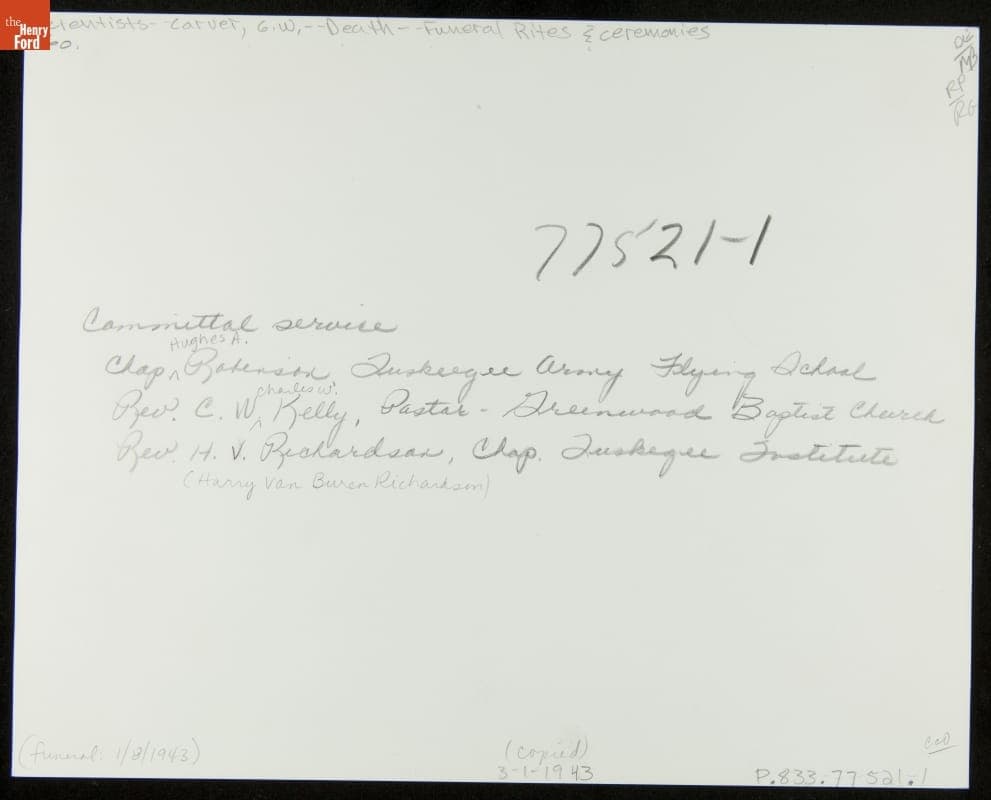 the
Henry
Ford
cientists- Carver, G.W.--Death--Funeral Rites & ceremonies
Co.
OC/MB
RP/RG
77521-1
Committal service
Hughes A.
Chap ^ Robinson Tuskeegee Army Flying School
Charles W.
Rev. C. W. ^ Kelly, Pastor - Greenwood Baptist Church
Rev. H. V. Richardson, Chap. Tuskegee Institute
(Harry Van Buren Richardson)
(funeral: 1/8/1943)
(copied)
3-1-1943
P.833.77521.1